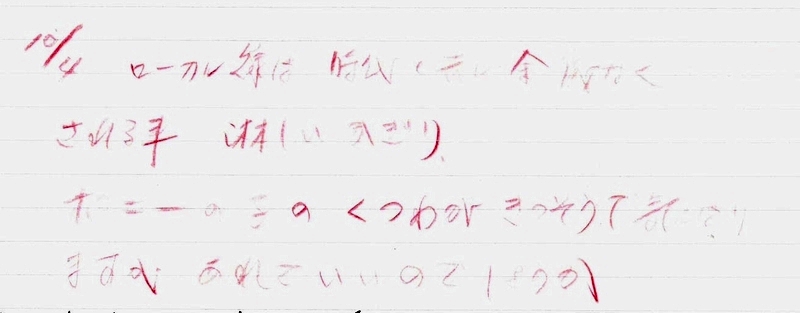 10/4 ローカル線は 時代と共に余儀なく
される事 淋しいかぎり
ポニーの子の くつわが きつそうで 気になり
ますが あれでいいのでしょうか